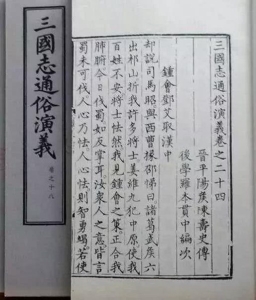 三國志通俗演義卷之二十四
晉平陽侯陳壽史傳
後學羅本貫中編次
鍾會鄧艾取漢中
却說司馬昭與西曹掾邵悌曰諸葛武侯六
出祁山折我許多將士姜維九犯中原使我
百姓不安將士怯然我見鍾會之策正合我
肺腑今日伐蜀如反掌耳汝衆人之意皆言
蜀未可伐人心乃怯人心怯則智勇竭若使
三國志通俗演義
卷之十八